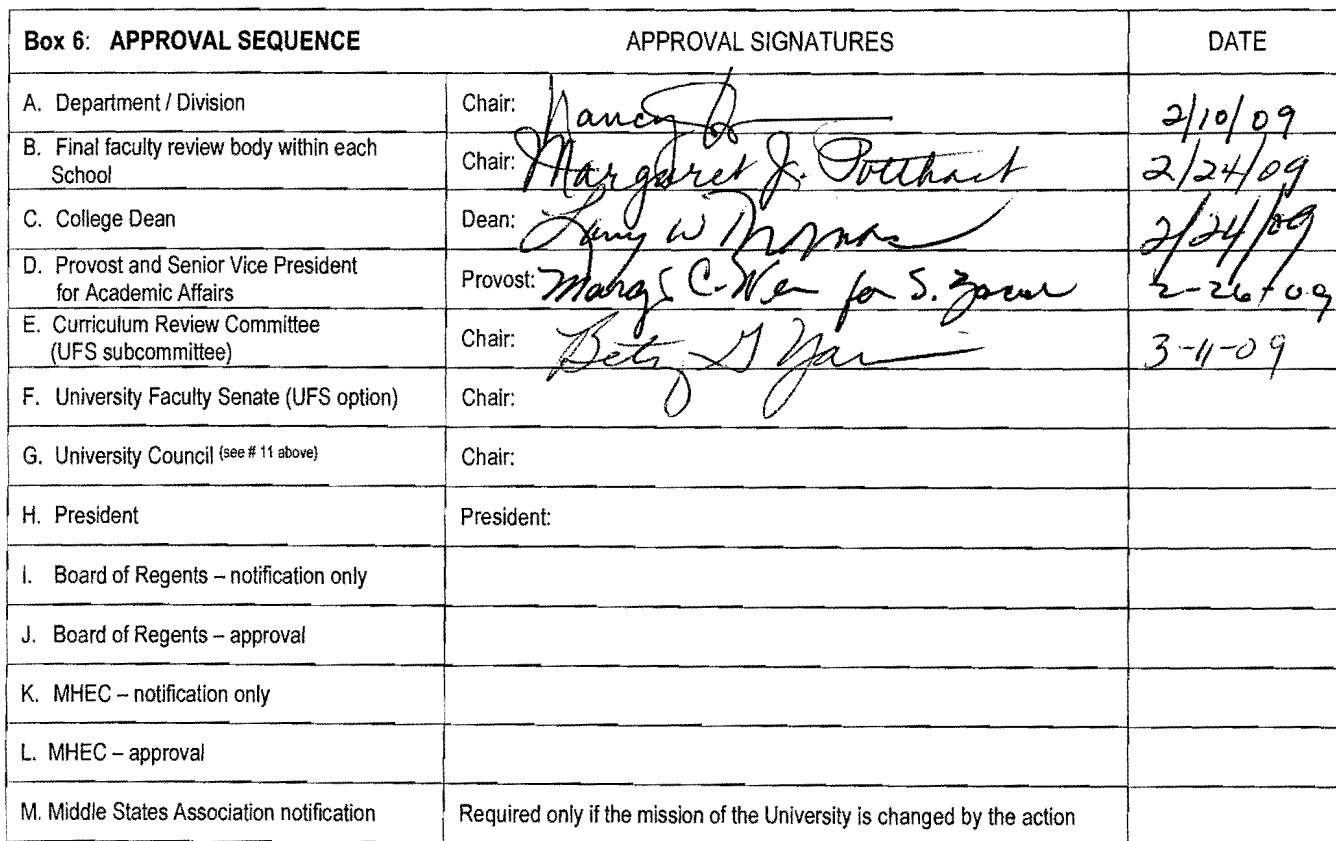 Box 6: APPROVAL SEQUENCE APPROVAL SIGNATURES DATE
A. Department / Division Chair: Nancy 2/10/09
B. Final faculty review body within each
School Chair: Margaret J. Potthast 2/24/09
C. College Dean Dean: Larry W Thomas 2/24/09
D. Provost and Senior Vice President
for Academic Affairs Provost: for S. 2-26-09
E. Curriculum Review Committee
(UFS subcommittee) Chair: Betsy 3-11-09
F. University Faculty Senate (UFS option) Chair:
G. University Council (see # 11 above) Chair:
H. President President:
I. Board of Regents – notification only
J. Board of Regents – approval
K. MHEC – notification only
L. MHEC – approval
M. Middle States Association notification Required only if the mission of the University is changed by the action